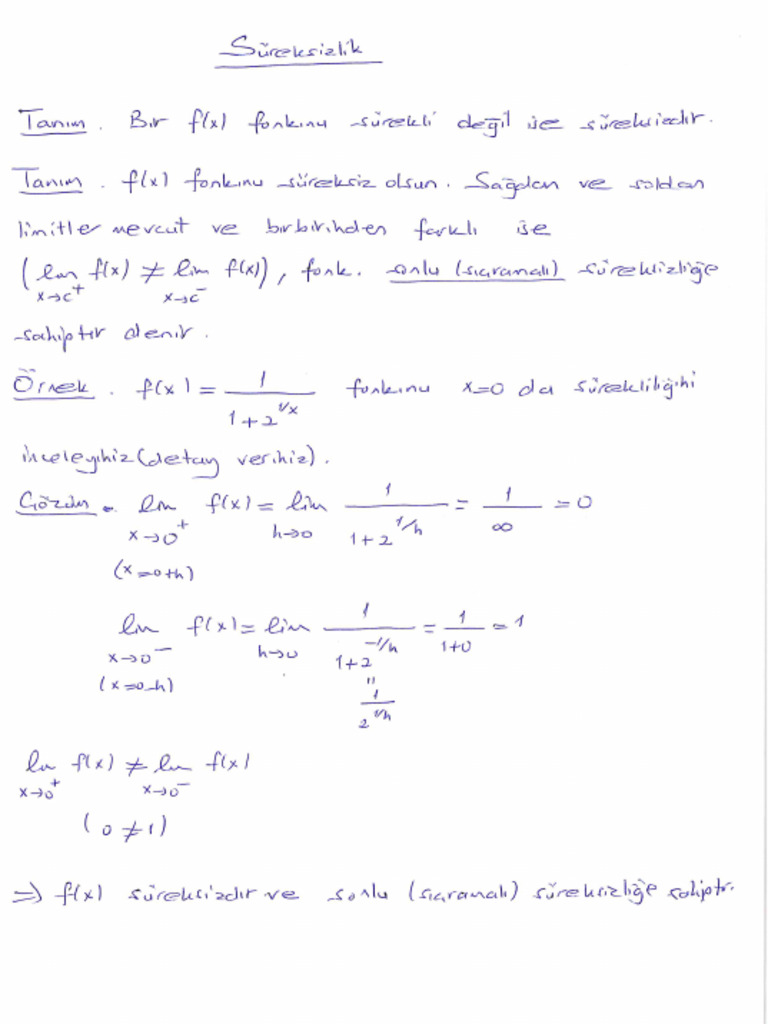 Süreksizlik
Tanım. Bir f(x) fonk.nu sürekli değil ise süreksizdir.
Tanım. f(x) fonk.nu süreksiz olsun. Sağdan ve soldan
limitler mevcut ve birbirinden farklı ise
(lim f(x) ≠ lim f(x)), fonk. sonlu (sıçramalı) süreksizliğe
x→c⁺ x→c⁻
sahiptir denir.
Örnek. f(x) = 1/(1+2^(1/x)) fonk.nu x=0 da sürekliliğini
inceleyiniz (detay veriniz).
Çözüm. lim f(x) = lim 1/(1+2^(1/h)) = 1/∞ = 0
x→0⁺ h→0
(x=0+h)
lim f(x) = lim 1/(1+2^(-1/h)) = 1/(1+0) = 1
x→0⁻ h→0
(x=0-h) "
1/2^(1/h)
lim f(x) ≠ lim f(x)
x→0⁺ x→0⁻
(0 ≠ 1)
⇒ f(x) süreksizdir ve sonlu (sıçramalı) süreksizliğe sahiptir.